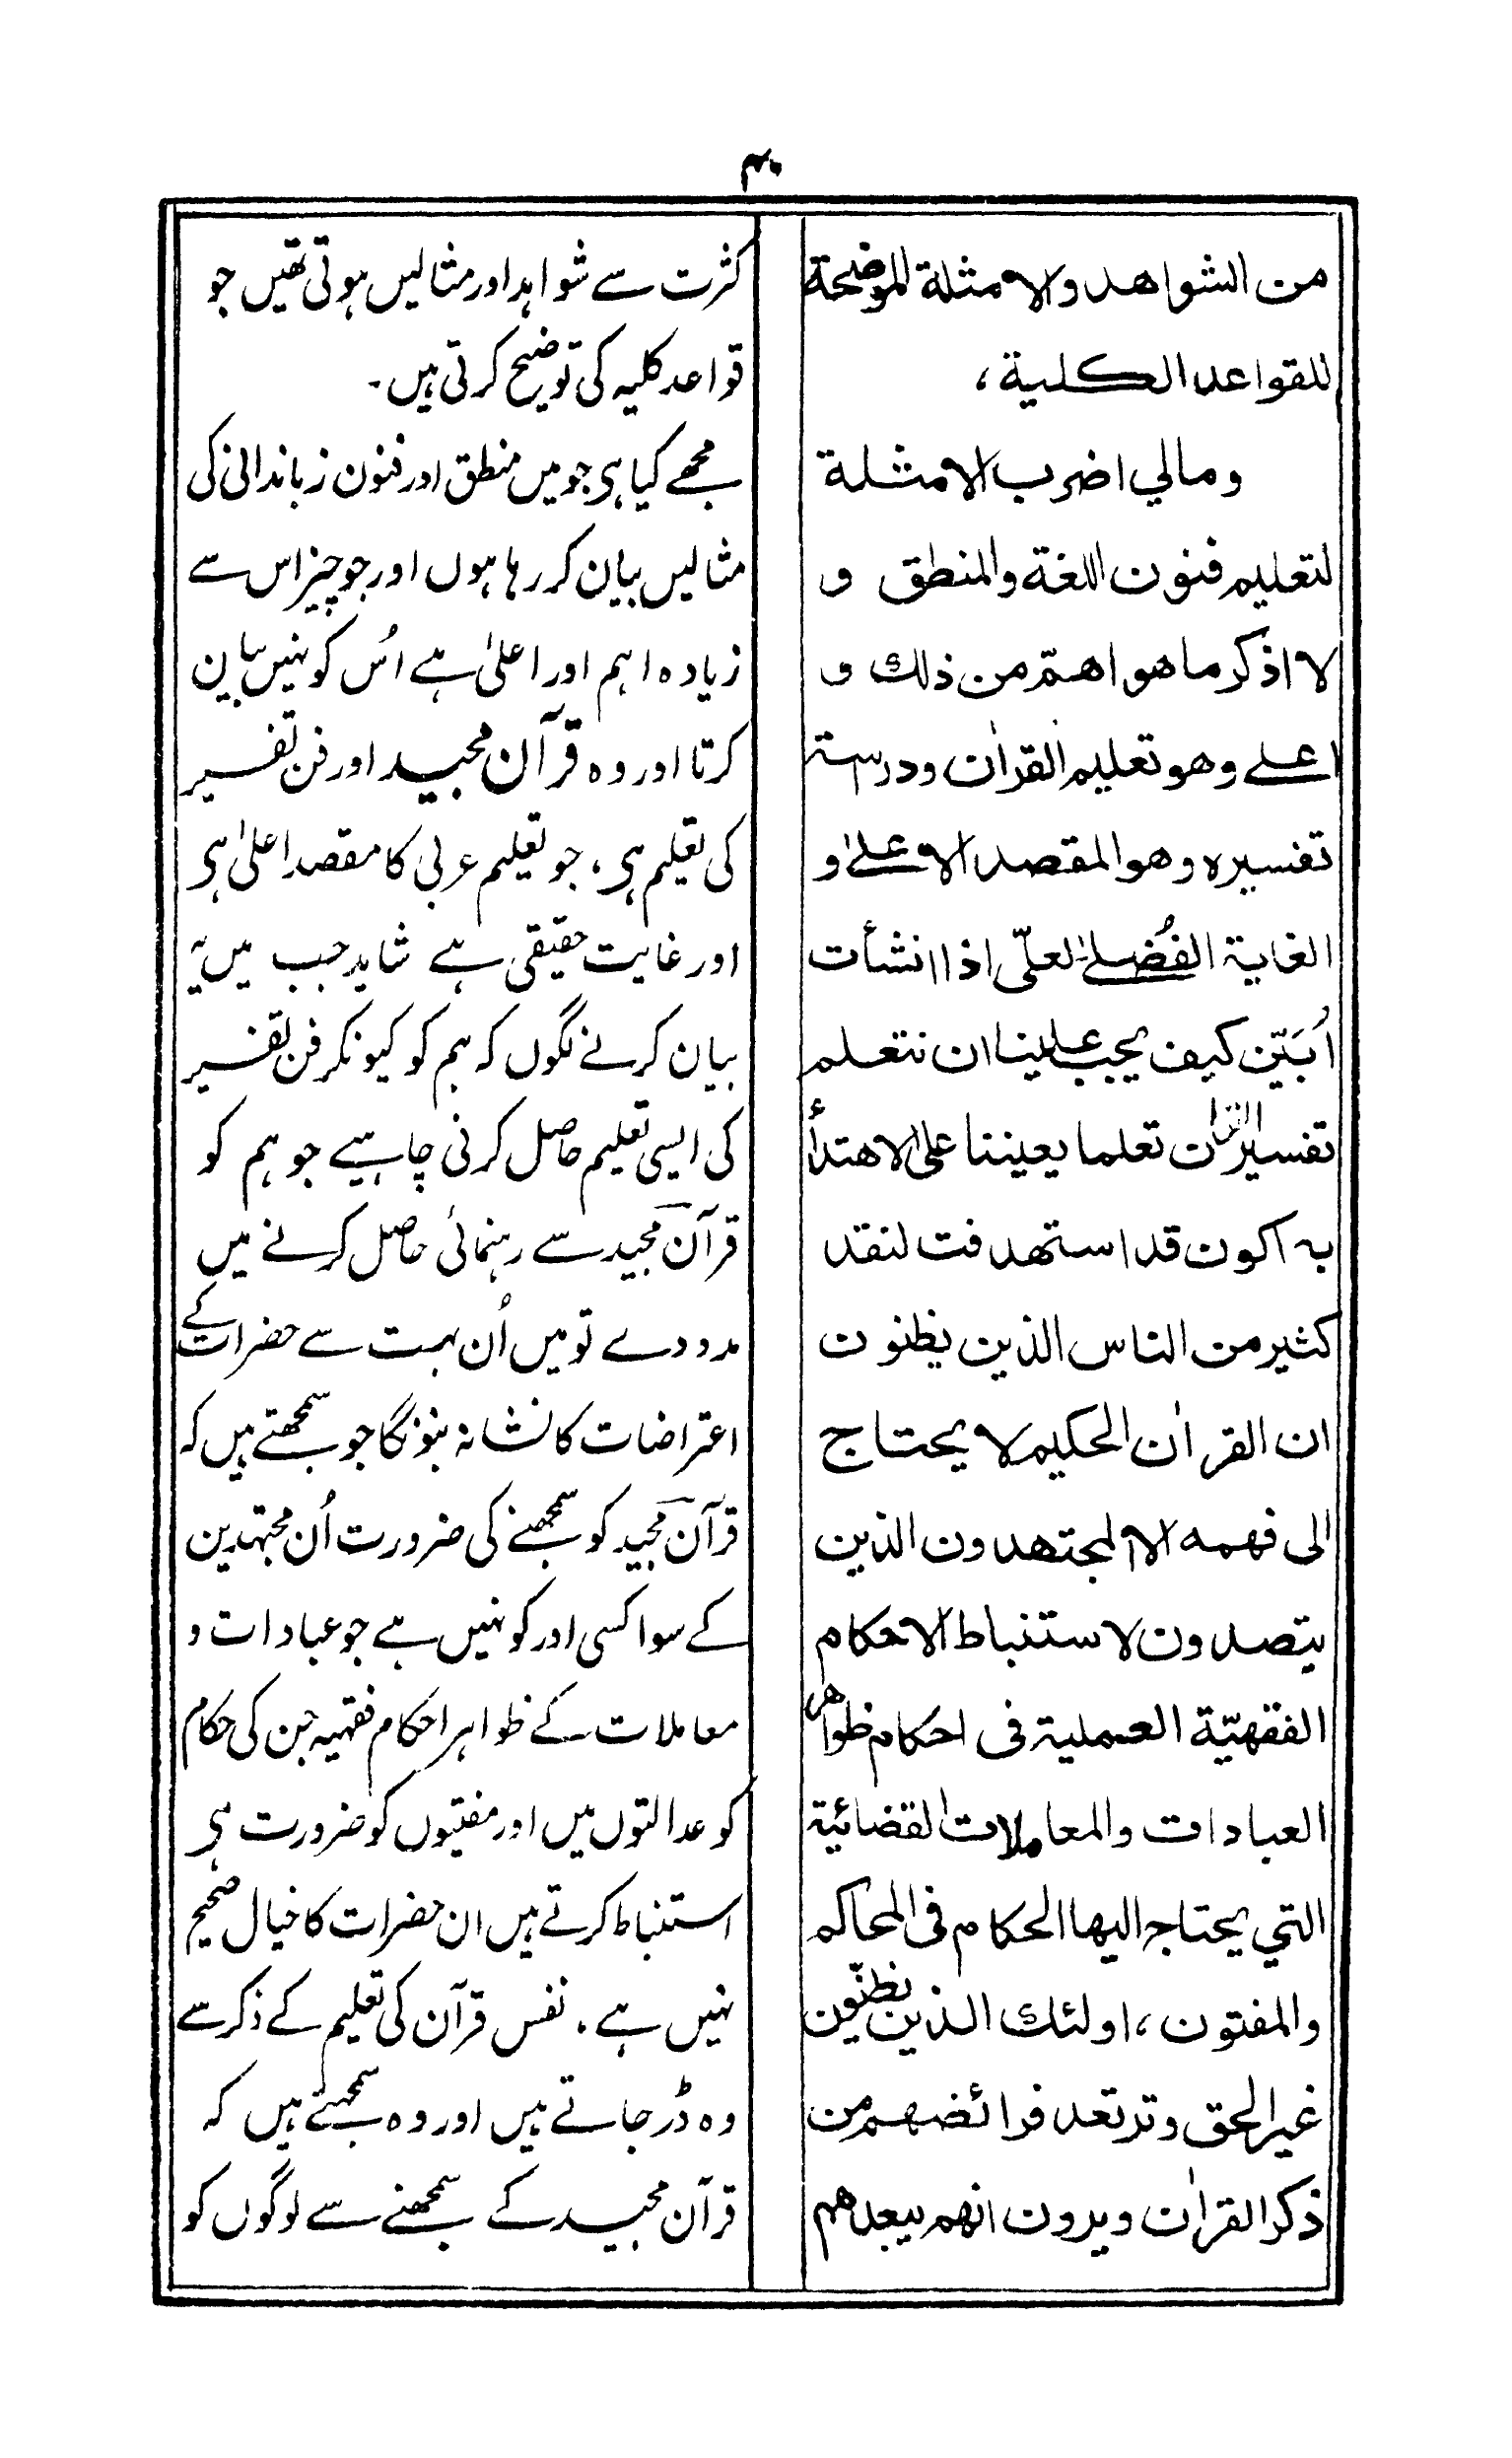 ۴۰
من الشواهد والامثلة الموضحة
للقواعد الكلية،
ومالي اضرب الامثلة
لتعليم فنون اللغة والمنطق و
لا اذكر ما هو اهمّ من ذلك و
اعلے وهو تعليم القراٰن ودرسته
تفسيره وهو المقصد الاعلےٰ و
الغاية الفُضلےٰ لعلّى اذا انشأت
اُبَيّن كيف يجب علينا ان نتعلم
تفسير القراٰن تعلما يعيننا على الاهتدأ
به اكون قد استهدفت لنقد
كثير من الناس الذين يظنون
ان القراٰن الحكيم لا يحتاج
الى فهمه الا المجتهدون الذين
يتصدون لاستنباط الاحكام
الفقهيّة العملية فى احكام ظواهر
العبادات والمعاملات القضائية
التي يحتاج اليها الحكام فى المحاكم
والمفتون، اولئك الذين يظنّون
غير الحق وترتعد فرائضهم من
ذكر القراٰن ويرون انهم يبعدهم
کثرت سے شواہد اور مثالیں ہوتی تھیں جو
قواعد کلیہ کی توضیح کرتی ہیں۔
مجھے کیا ہی جو میں منطق اور فنون زباندانی کی
مثالیں بیان کر رہا ہوں اور جو چیز اس سے
زیادہ اہم اور اعلیٰ ہے اُس کو نہیں بیان
کرتا اور وہ قرآن مجید اور فن تفسیر
کی تعلیم ہی، جو تعلیم عربی کا مقصد اعلیٰ ہی
اور غایت حقیقی ہے شاید جب میں یہ
بیان کرنے لگوں کہ ہم کو کیونکر فن تفسیر
کی ایسی تعلیم حاصل کرنی چاہیے جو ہم کو
قرآن مجید سے رہنمائی حاصل کرنے میں
مدد دے تو میں اُن بہت سے حضرات کے
اعتراضات کا نشانہ بنونگا جو سمجھتے ہیں کہ
قرآن مجید کو سمجھنے کی ضرورت اُن مجتہدین
کے سوا کسی اور کو نہیں ہے جو عبادات و
معاملات کے ظواہر احکام فقہیہ جن کی حکام
کو عدالتوں میں اور مفتیوں کو ضرورت ہی
استنباط کرتے ہیں ان حضرات کا خیال صحیح
نہیں ہے۔ نفس قرآن کی تعلیم کے ذکر سے
وہ ڈر جاتے ہیں اور وہ سمجھتے ہیں کہ
قرآن مجید کے سمجھنے سے لوگوں کو